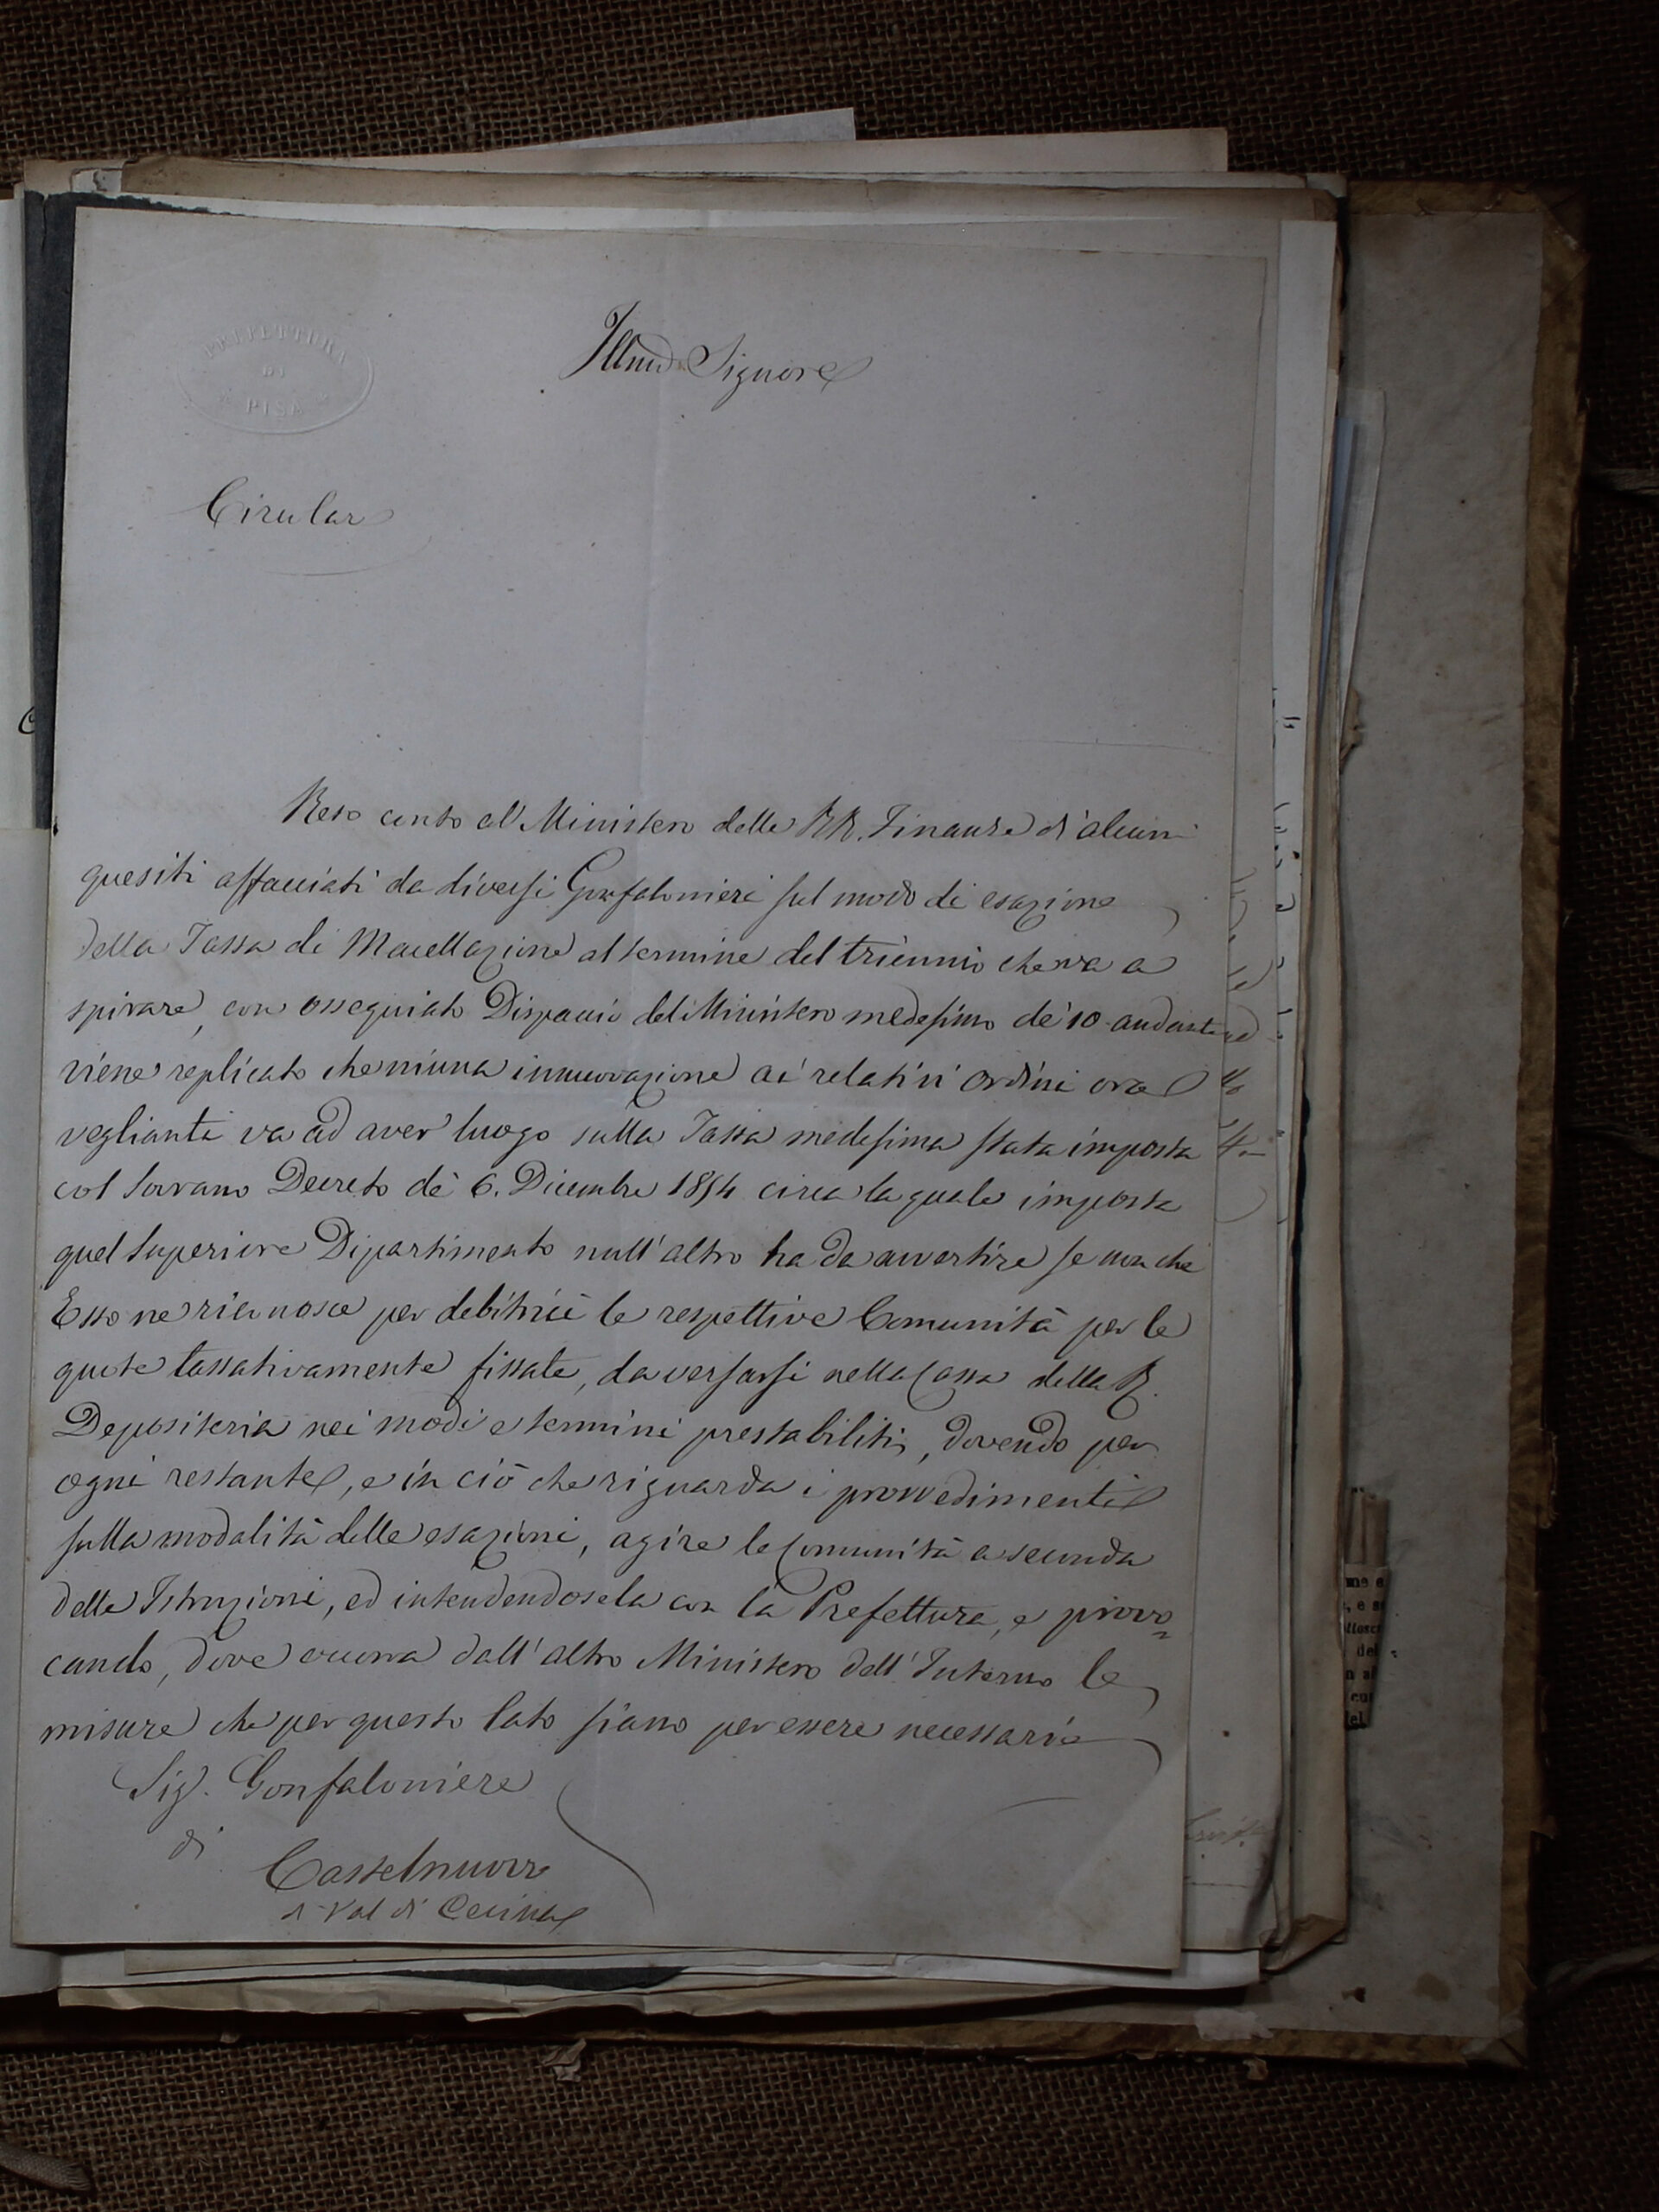 PREFETTURA
DI
PISA
Illmo Signore
Circolare
Reso conto al Ministero delle RR. Finanze di alcuni
quesiti affacciati da diversi Gonfalonieri sul modo di esazione
della Tassa di Macellazione al termine del triennio che va a
spirare, con ossequiato Dispaccio del Ministero medesimo de' 10 andante
viene replicato che niuna innuovazione ai relativi Ordini ora
veglianti va ad aver luogo sulla Tassa medesima stata imposta
col Sovrano Decreto de' 6. Dicembre 1854 circa la quale imposta
quel Superiore Dipartimento null'altro ha da avvertire se non che
Esso ne riconosce per debitrici le respettive Comunità per le
quote tassativamente fissate, da versarsi nella Cassa della R.
Depositeria nei modi e termini prestabiliti, dovendo per
ogni restante, e in ciò che riguarda i provvedimenti
sulla modalità delle esazioni, agire le Comunità a seconda
delle Istruzioni, ed intendendosela con la Prefettura, e provo=
cando, dove occorra dall'altro Ministero dell'Interno le
misure che per questo lato siano per essere necessarie
Sig. Gonfaloniere
di
Castelnuovo
di Val di Cecina